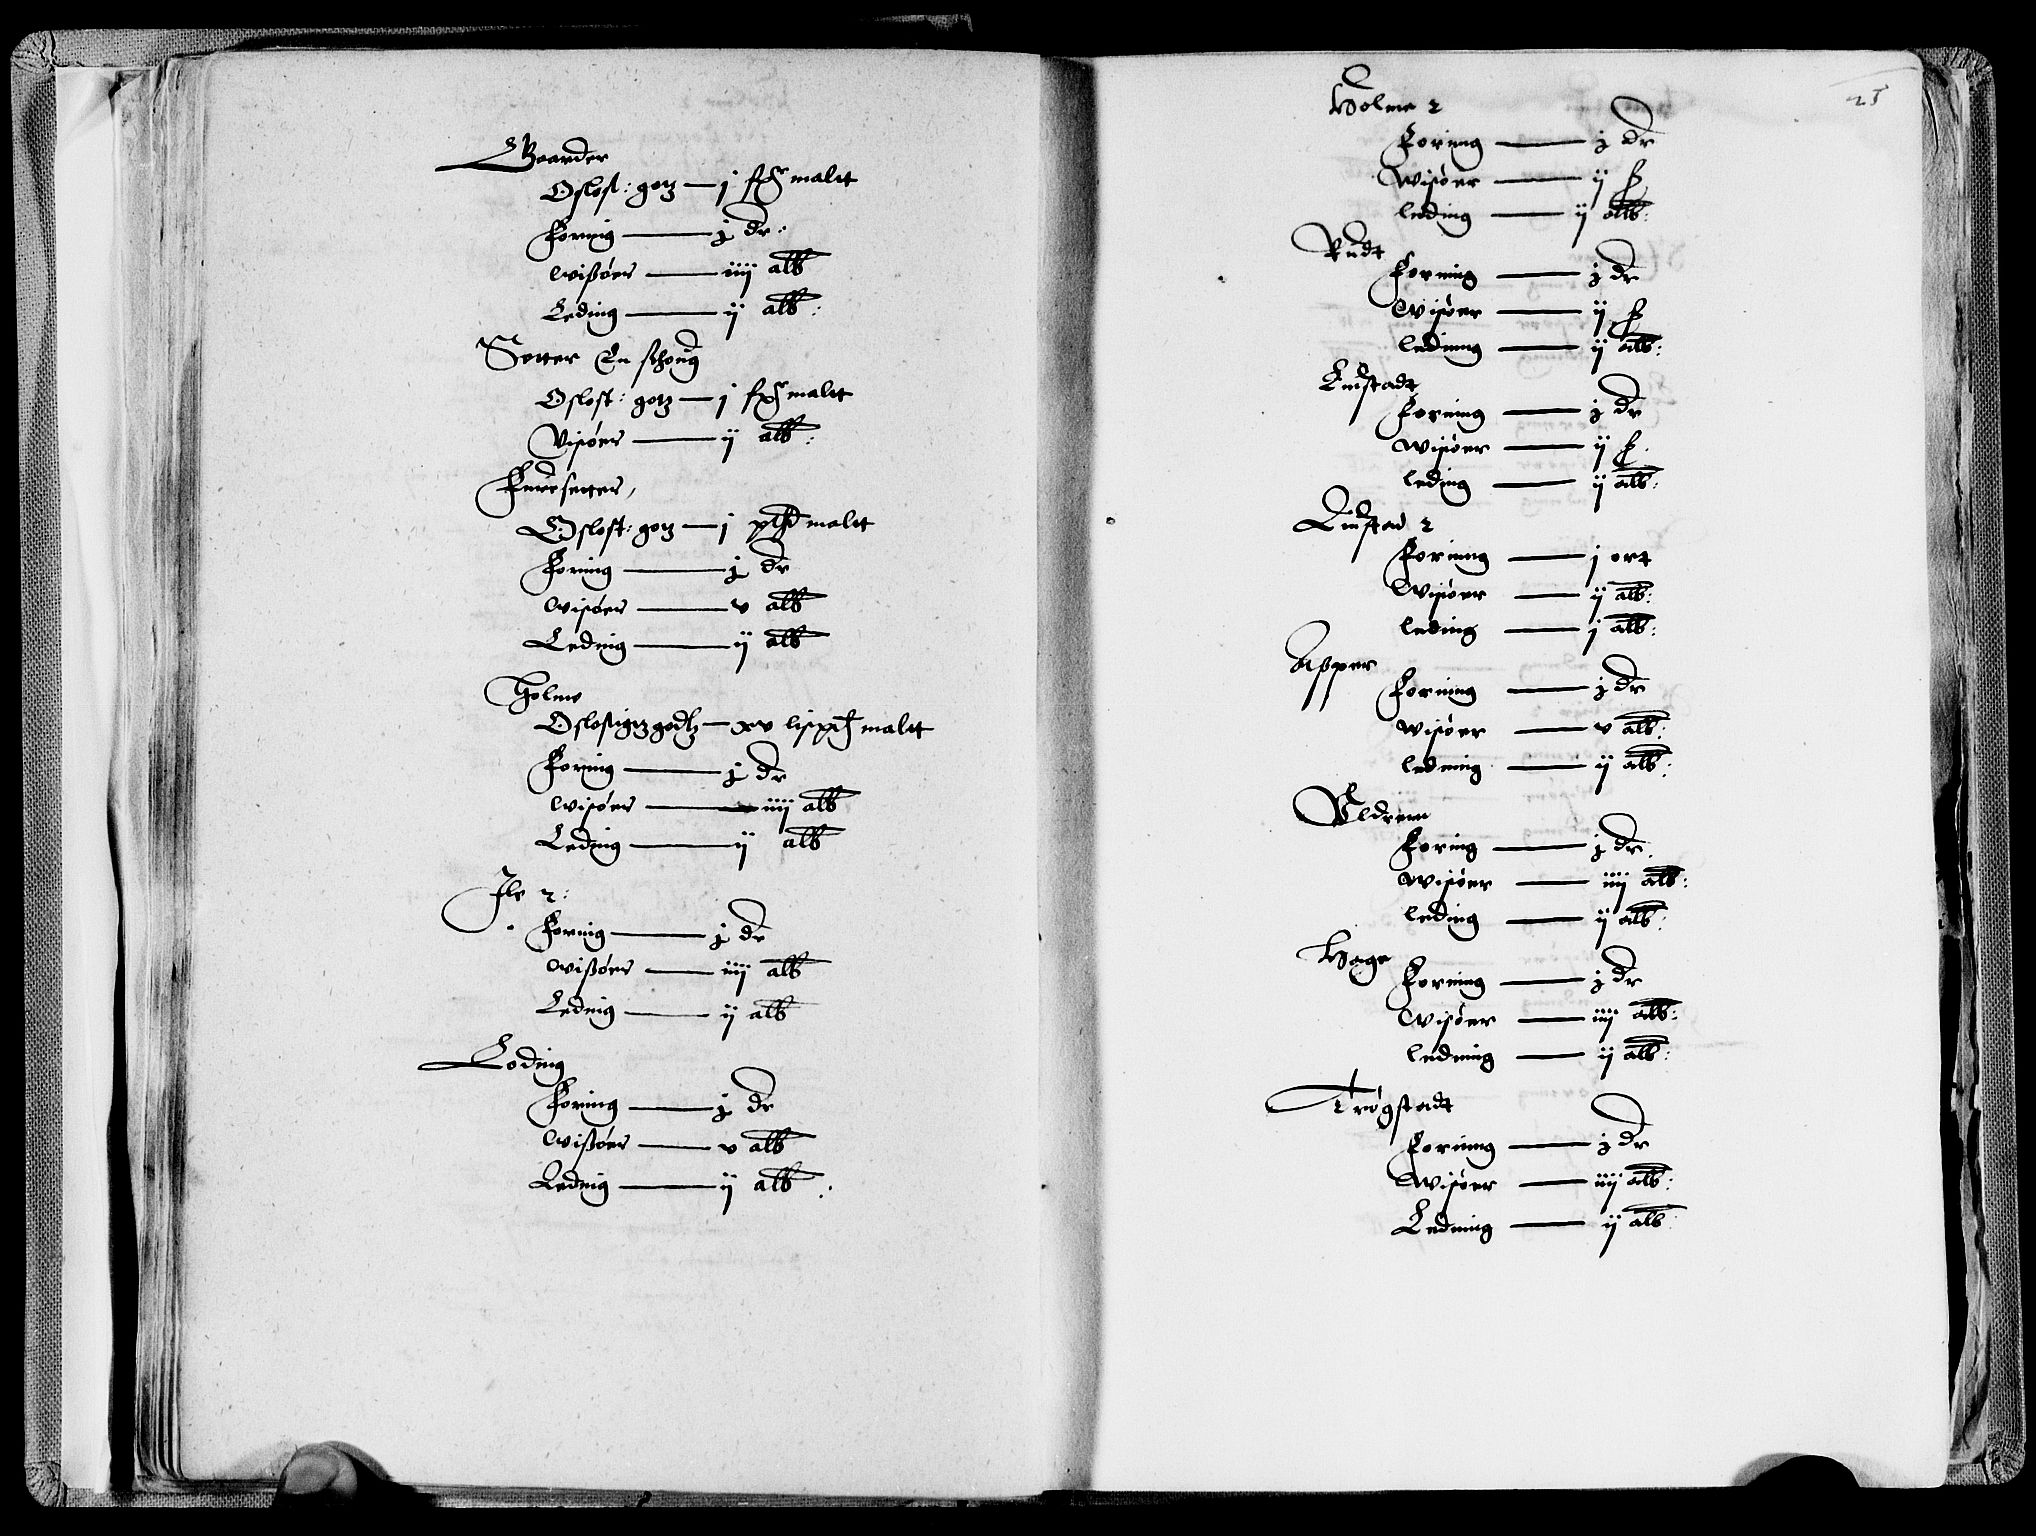 Gaarder
Oslost: gotz — j malet
Foring — j dr:
wißøer — iiij alb
Leding — ij alb:
Setter En schoug
Oslost: gotz — j malet
Visøer — ij alb:
Furesetter,
Oslost: gotz — j malet
Foring — j dr
wisøer — v alb
Leding — ij alb
Holme
godtz — xv malet
Foring — j dr
wisøer — iiij alb
Leding — ij alb
Ile 2:
Foring — j dr
wißøer — iiij alb
Leding — ij alb
Loding
Foring — j dr
wißøer — v alb
Leding — ij alb:
25
Holme 2
Foring — j dr
Wisøer — ij ß
leding — ij alb:
Rudt
Forning — j dr
Wisøer — ij ß
ledning — ij alb:
Linstadt
Forning — j dr
wisøer — ij ß.
leding — ij alb:
Linstad 2
Forning — j ort
Wisøer — ij alb:
leding — j alb:
Asper
Forning — j dr
wisøer — v alb:
ledning — ij alb:
Foring — j dr.
Wisøer — iiij alb:
leding — ij alb:
Hage
Forning — j dr
Wisøer — iiij alb:
ledning — ij alb:
Trøgstadt
Forning — j dr
Wisøer — iiij alb:
Ledning — ij alb: